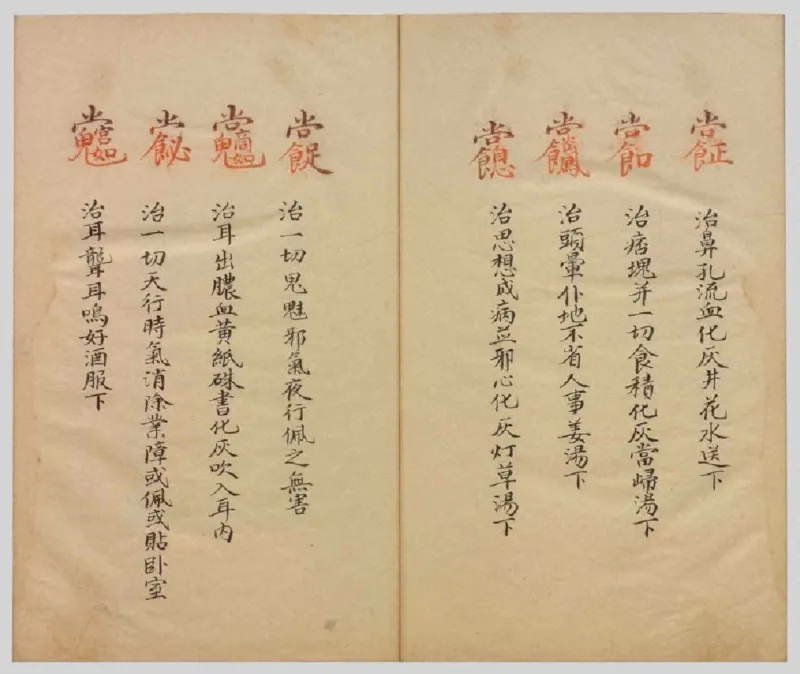 治鼻孔流血化灰井花水送下
治痞塊并一切食積化灰當歸湯下
治頭暈仆地不省人事姜湯下
治思想成病並邪心化灰灯草湯下
治一切鬼魅邪氣夜行佩之無害
治耳出膿血黃紙硃書化灰吹入耳內
治一切天行時氣消除業障或佩或貼卧室
治耳聾耳鳴好酒服下